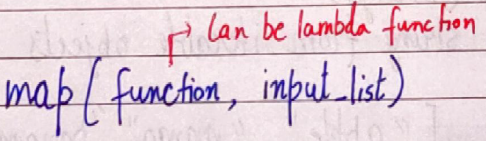 Can be lambda function
map( function, input_list)